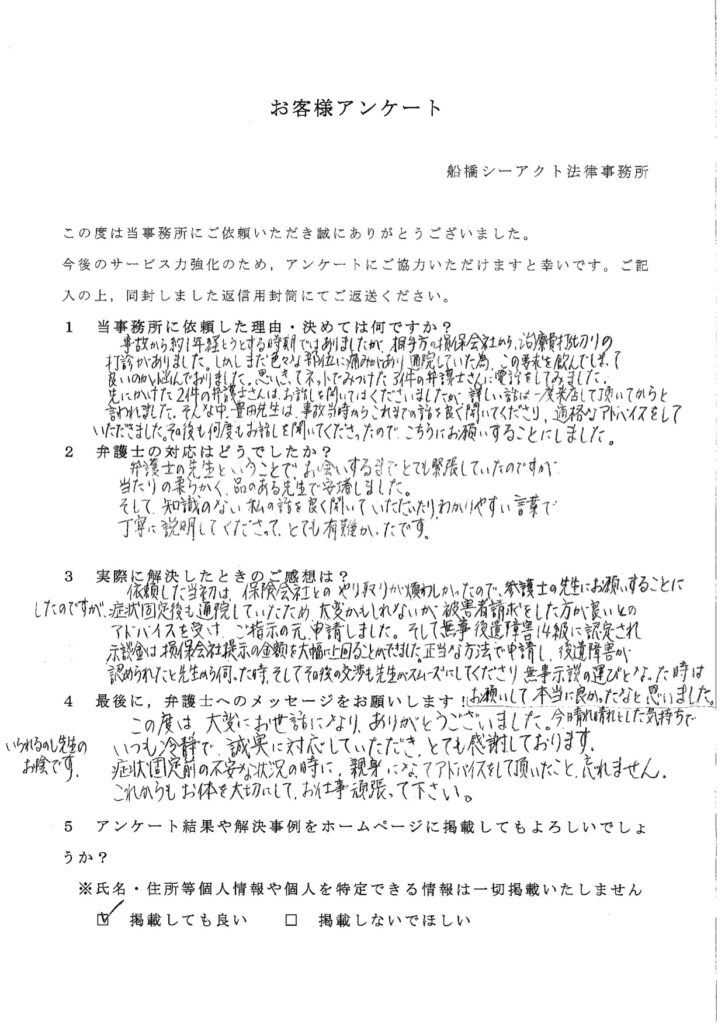 お客様アンケート
船橋シーアクト法律事務所
この度は当事務所にご依頼いただき誠にありがとうございました。
今後のサービス力強化のため，アンケートにご協力いただけますと幸いです。ご記
入の上，同封しました返信用封筒にてご返送ください。
１　当事務所に依頼した理由・決めては何ですか？
事故から約1年経とうとする時期ではありましたが、相手方の損保会社から、治療費打ち切りの
打診がありました。しかしまだ色々な部位に痛みがあり通院していた為、この要求を飲んでしまって
良いのか悩んでおりました。思いきってネットでみつけた3件の弁護士さんに電話をしてみました。
先にかけた2件の弁護士さんは、お話しを聞いてはくださいましたが、詳しい話は一度来店して頂いてからと
言われました。そんな中、豊田先生は、事故当時からこれまでの話を良く聞いてくださり、適格なアドバイスをして
いただきました。その後も何度もお話しを聞いてくださったので、こちらにお願いすることにしました。
２　弁護士の対応はどうでしたか？
弁護士の先生ということで、お会いするまでとても緊張していたのですが
当たりの柔らかく、品のある先生で安堵しました。
そして、知識のない私の話を良く聞いていただいたりわかりやすい言葉で
丁寧に説明してくださって、とても有難かったです。
３　実際に解決したときのご感想は？
依頼した当初は、保険会社とのやり取りが煩わしかったので、弁護士の先生にお願いすることに
したのですが、症状固定後も通院していたため、大変かもしれないが、被害者請求をした方が良いとの
アドバイスを受け、ご指示の元、申請しました。そして無事後遺障害14級に認定され
示談金は、損保会社提示の金額を大幅に上回ることができました。正当な方法で申請し、後遺障害が
認められたと先生から伺った時、そしてその後の交渉も先生がスムーズにしてくださり、無事示談の運びとなった時は
お願いして本当に良かったなと思いました。
４　最後に，弁護士へのメッセージをお願いします！
この度は、大変にお世話になり、ありがとうございました。今日晴れ晴れとした気持ちで
いられるのも先生の
お陰です。
いつも冷静で、誠実に対応していただき、とても感謝しております。
症状固定前の不安な状況の時に、親身になってアドバイスをして頂いたこと、忘れません。
これからもお体を大切にして、お仕事頑張って下さい。
５　アンケート結果や解決事例をホームページに掲載してもよろしいでしょ
うか？
※氏名・住所等個人情報や個人を特定できる情報は一切掲載いたしません
☑　掲載しても良い　　□　掲載しないでほしい